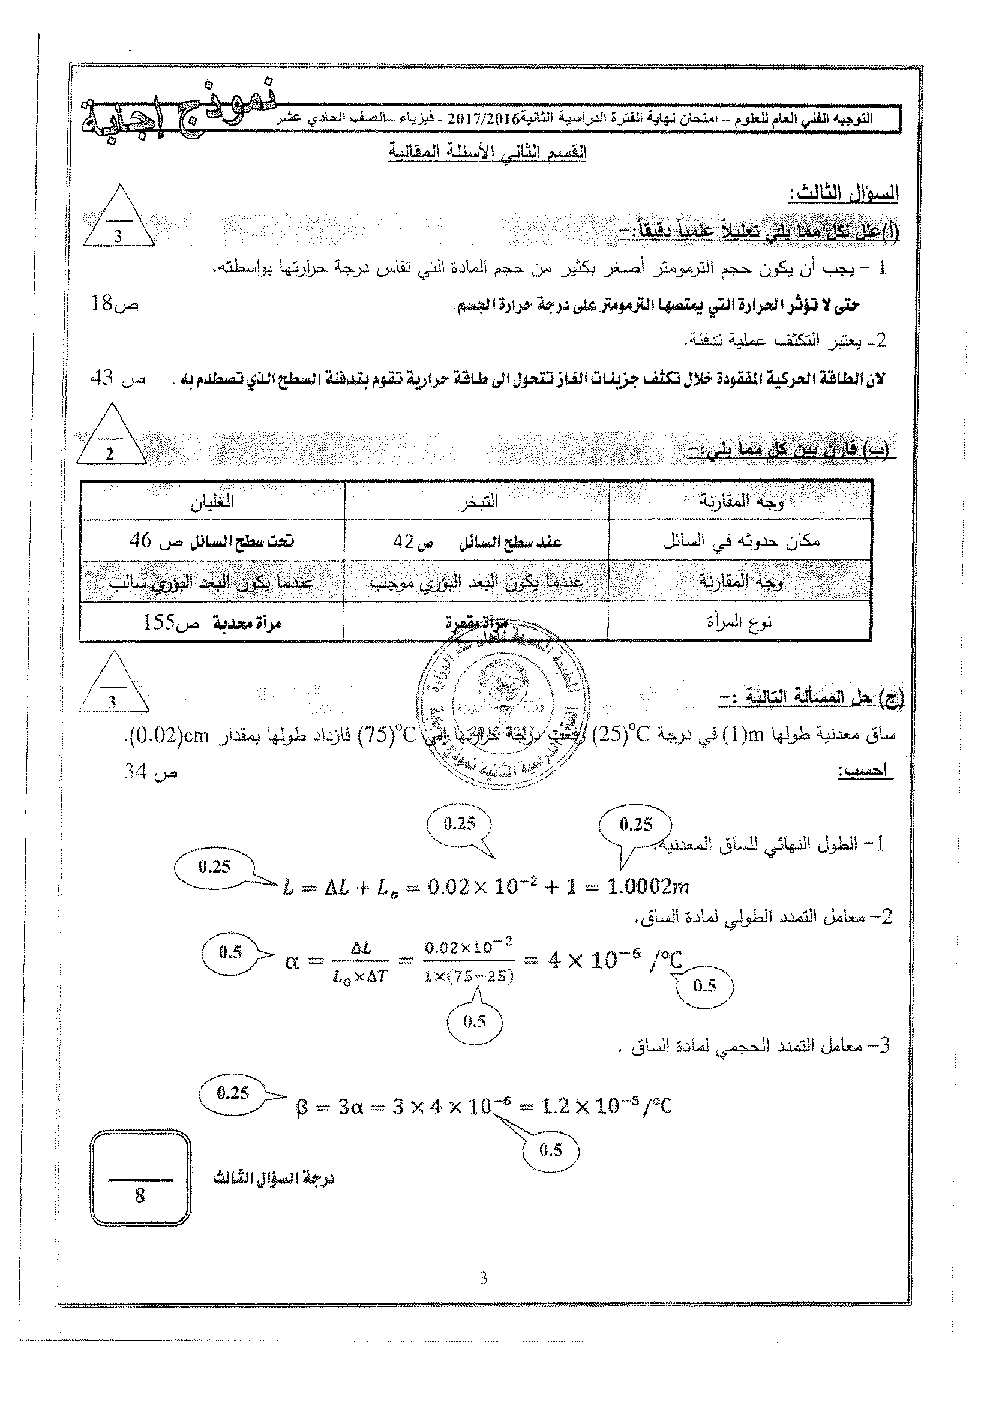 نموذج إجابة
التوجيه الفني العام للعلوم – امتحان نهاية الفترة الدراسية الثانية 2017/2016 - فيزياء – الصف الحادي عشر
القسم الثاني الأسئلة المقالية
السؤال الثالث:
(أ) علل لكل مما يلي تعليلاً علمياً دقيقاً:-
3
1 – يجب أن يكون حجم الترمومتر أصغر بكثير من حجم المادة التي تقاس درجة حرارتها بواسطته.
حتى لا تؤثر الحرارة التي يمتصها الترمومتر على درجة حرارة الجسم. ص18
2- يعتبر التكثف عملية تدفئة.
لان الطاقة الحركية المفقودة خلال تكثف جزيئات الغاز تتحول الى طاقة حرارية تقوم بتدفئة السطح الذي تصطدم به . ص 43
(ب) قارن بين كل مما يلي:-
2
وجه المقارنة التبخر الغليان
مكان حدوثه في السائل عند سطح السائل ص42 تحت سطح السائل ص 46
وجه المقارنة عندما يكون البعد البؤري موجب عندما يكون البعد البؤري سالب
نوع المرآة مرآة مقعرة مرآة محدبة ص155
(ج) حل المسألة التالية :-
3
ساق معدنية طولها m(1) في درجة (25)°C درجة حرارتها إلي (75)°C فازداد طولها بمقدار (0.02)cm.
احسب: ص 34
1- الطول النهائي للساق المعدنية.
0.25 0.25 0.25
L = ΔL + L₀ = 0.02 × 10⁻² + 1 = 1.0002m
2- معامل التمدد الطولي لمادة الساق.
0.5 α = ΔL / (L₀×ΔT) = 0.02×10⁻² / (1×(75−25)) = 4 × 10⁻⁶ /°C
0.5
0.5
3- معامل التمدد الحجمي لمادة الساق .
0.25 β = 3α = 3 × 4 × 10⁻⁶ = 1.2 × 10⁻⁵/°C
0.5
درجة السؤال الثالث
8
3